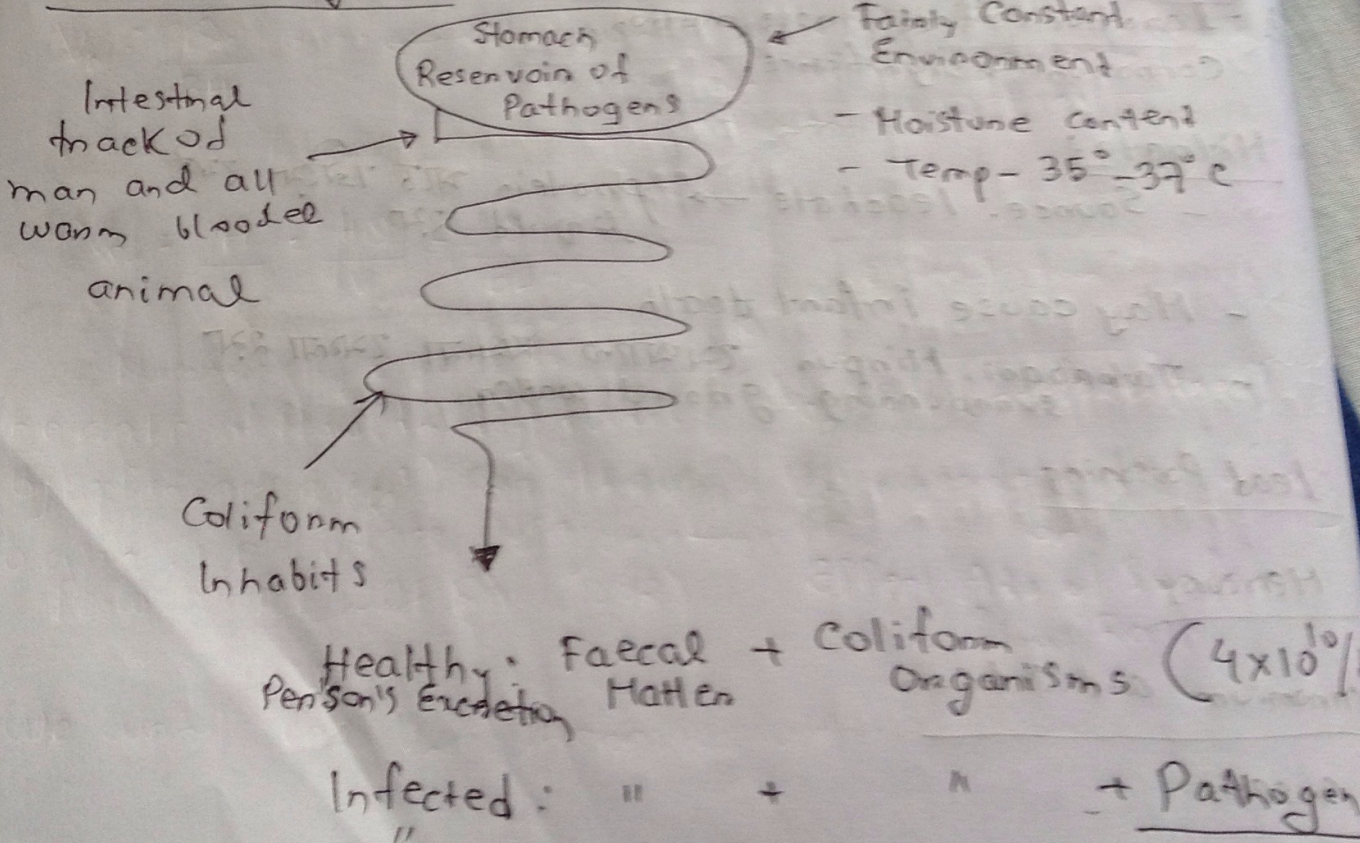 Stomach
Reservoir of
Pathogens
Fairly Constant
Environment
- Moisture content
- Temp - 35° - 37° c
Intestinal
track of
man and all
warm blooded
animal
Coliform
Inhabits
Healthy : Faecal + Coliform
Person's Excretion Matter Organisms (4x10^10/
Infected : " + " + Pathogen
"